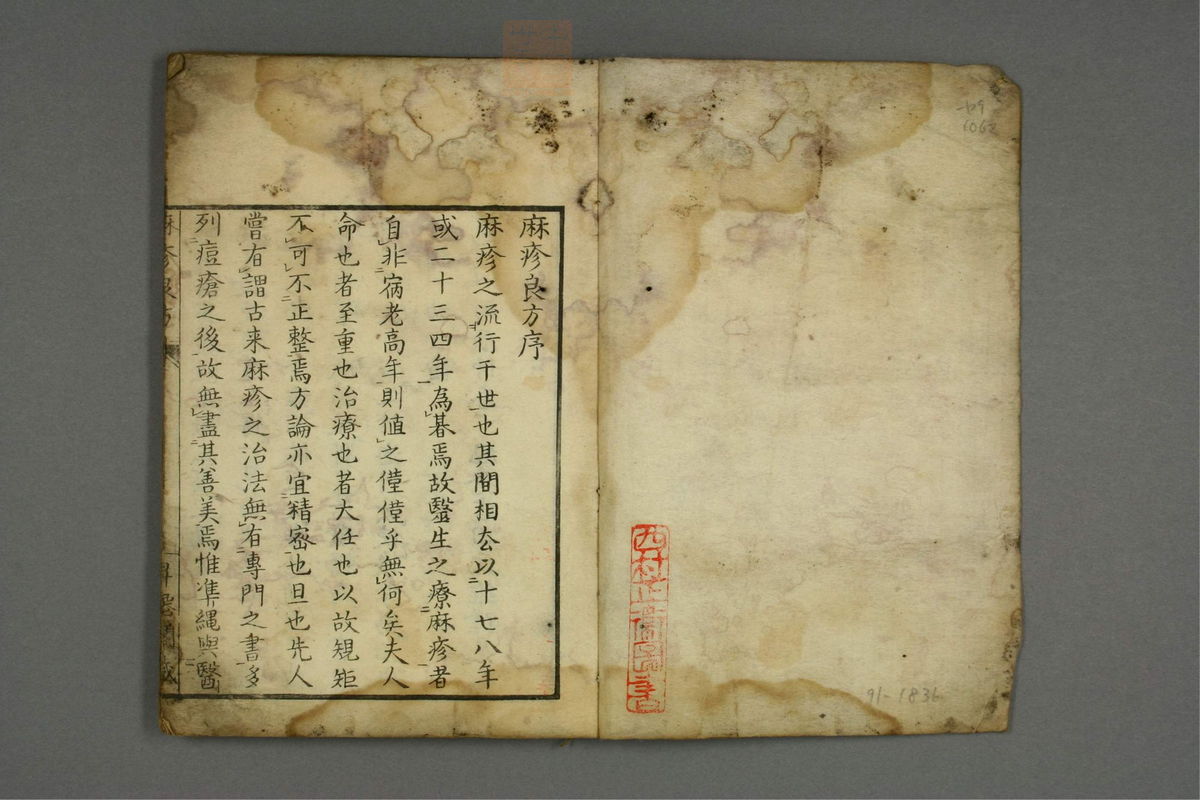 麻疹良方序
麻疹之流行于世也其間相去以十七八年
或二十三四年為碁焉故毉生之療麻疹者
自非病老高年則値之僅僅乎無何矣夫人
命也者至重也治療也者大任也以故規矩
不可不正整焉方論亦宜精密也且也先人
嘗有謂古来麻疹之治法無有專門之書多
列痘瘡之後故無盡其善美焉惟準縄與醫
麻疹良方
91-1836